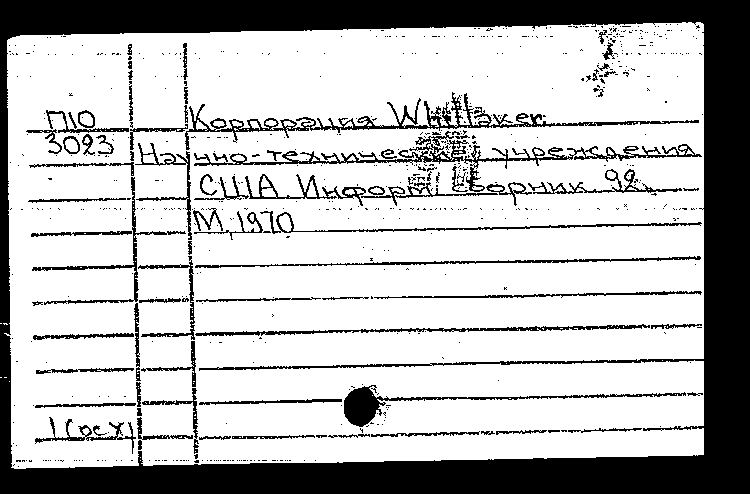 П10 Корпорация Whittaker.
3023 Научно-технические учреждения
США. Информ. сборник 92,
М, 1970
1(осх)